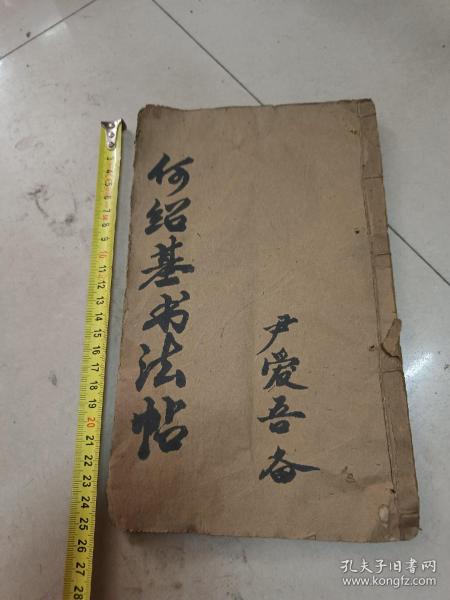 何绍基书法帖
尹爱吾备
3 4 5 6 7 8 9 10 11 12 13 14 15 16 17 18 19 20 21 22 23 24 25 26 27 28
孔夫子旧书网
www.kongfz.com